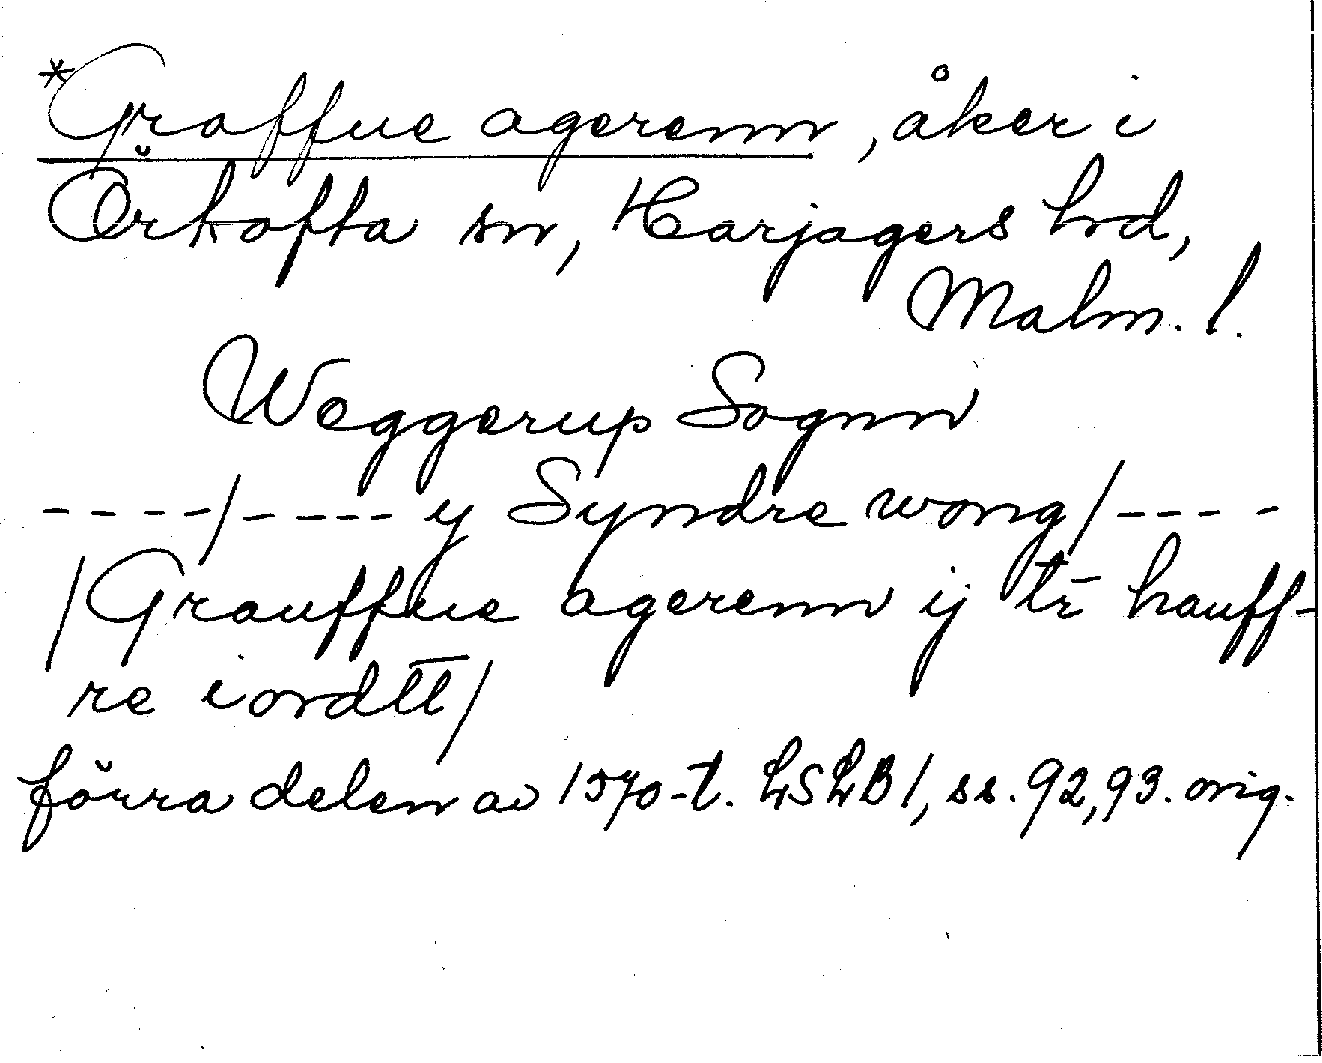 *Graffue agerenn, åker i
Örtofta sn, Harjagers hrd,
Malm. l.
Weggerup Sognn
----/---- y Syndre wong/----
/Grauffue agerenn ij tr̄ hauff-
re iordtt/
förra delen av 1570-t. LSLB1, ss. 92,93. orig.